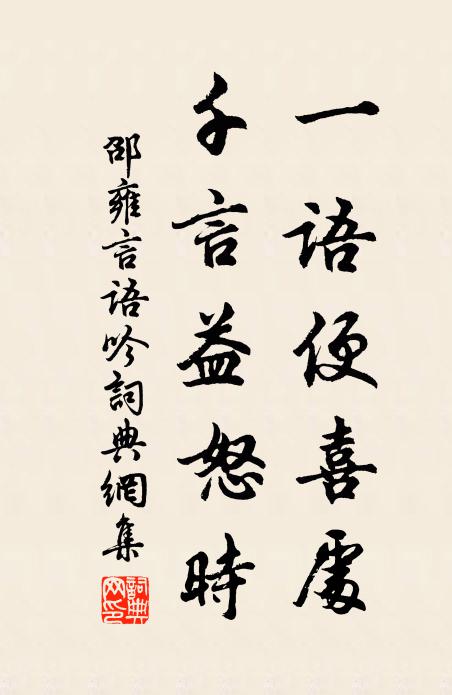 一語便喜處
千言益怒時
邵雍言語吟詞典網集
詞典网印